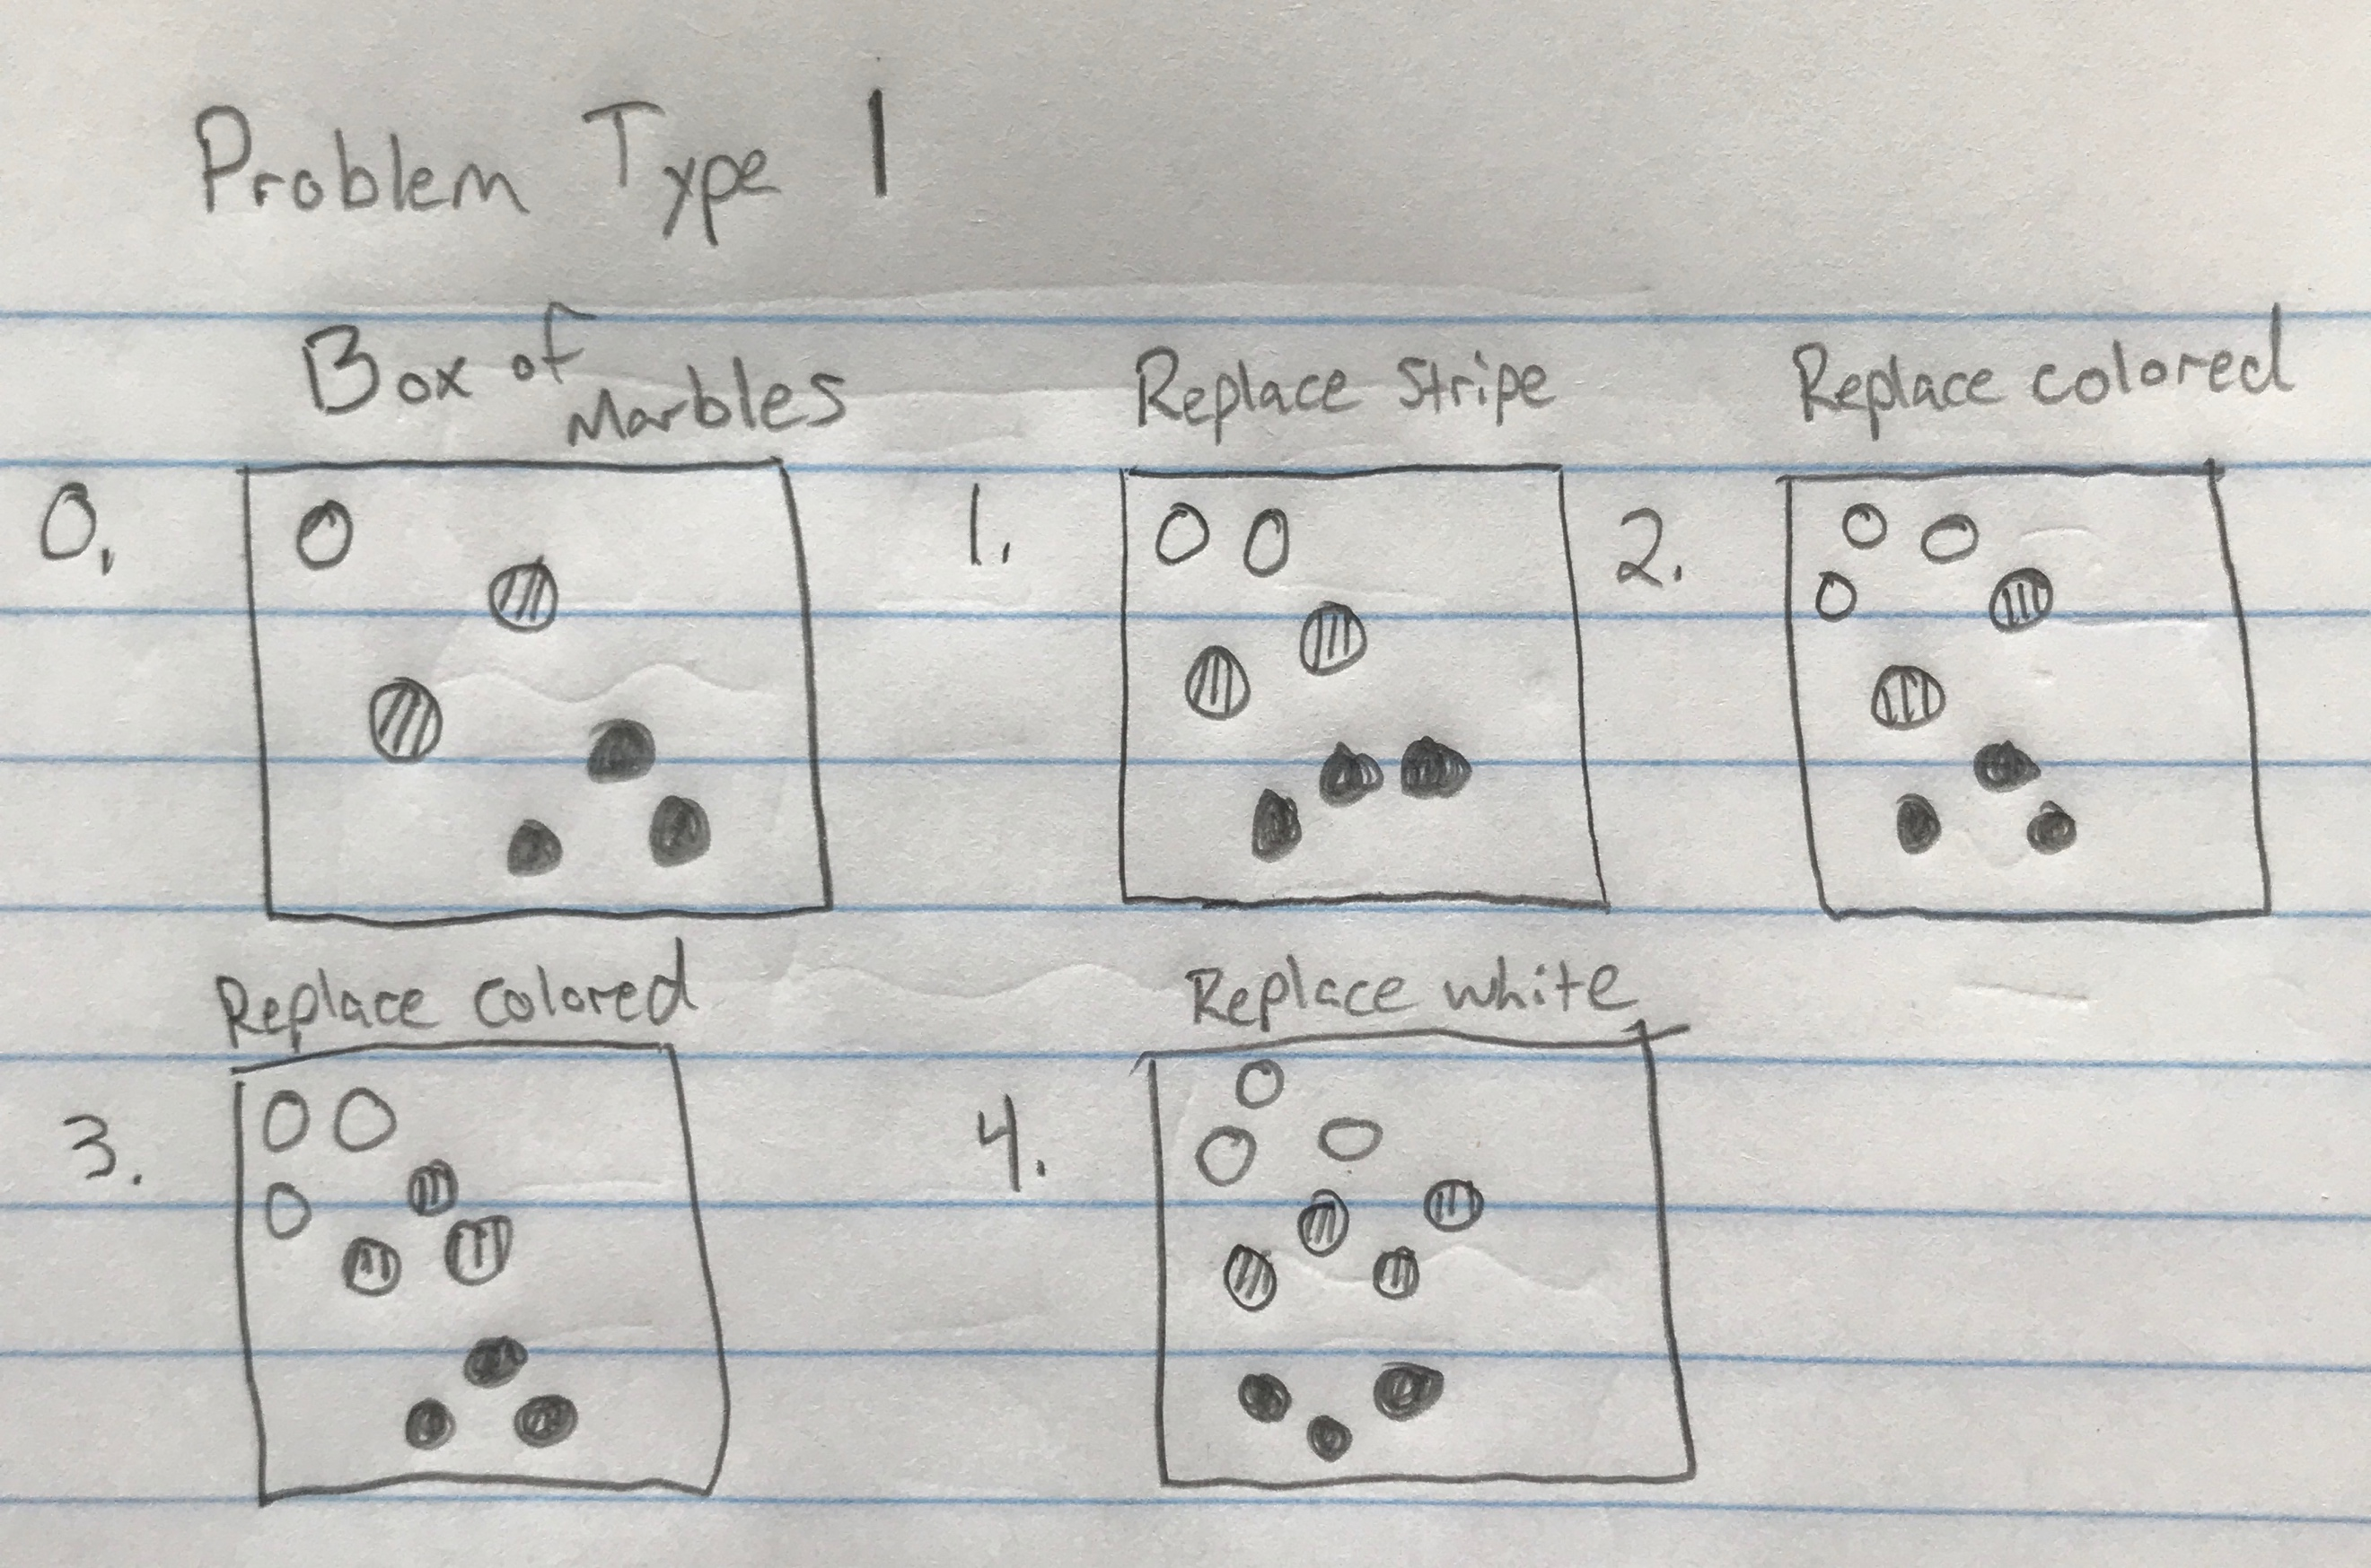 Problem Type 1
Box of Marbles
Replace Stripe
Replace colored
0.
1.
2.
Replace colored
Replace white
3.
4.